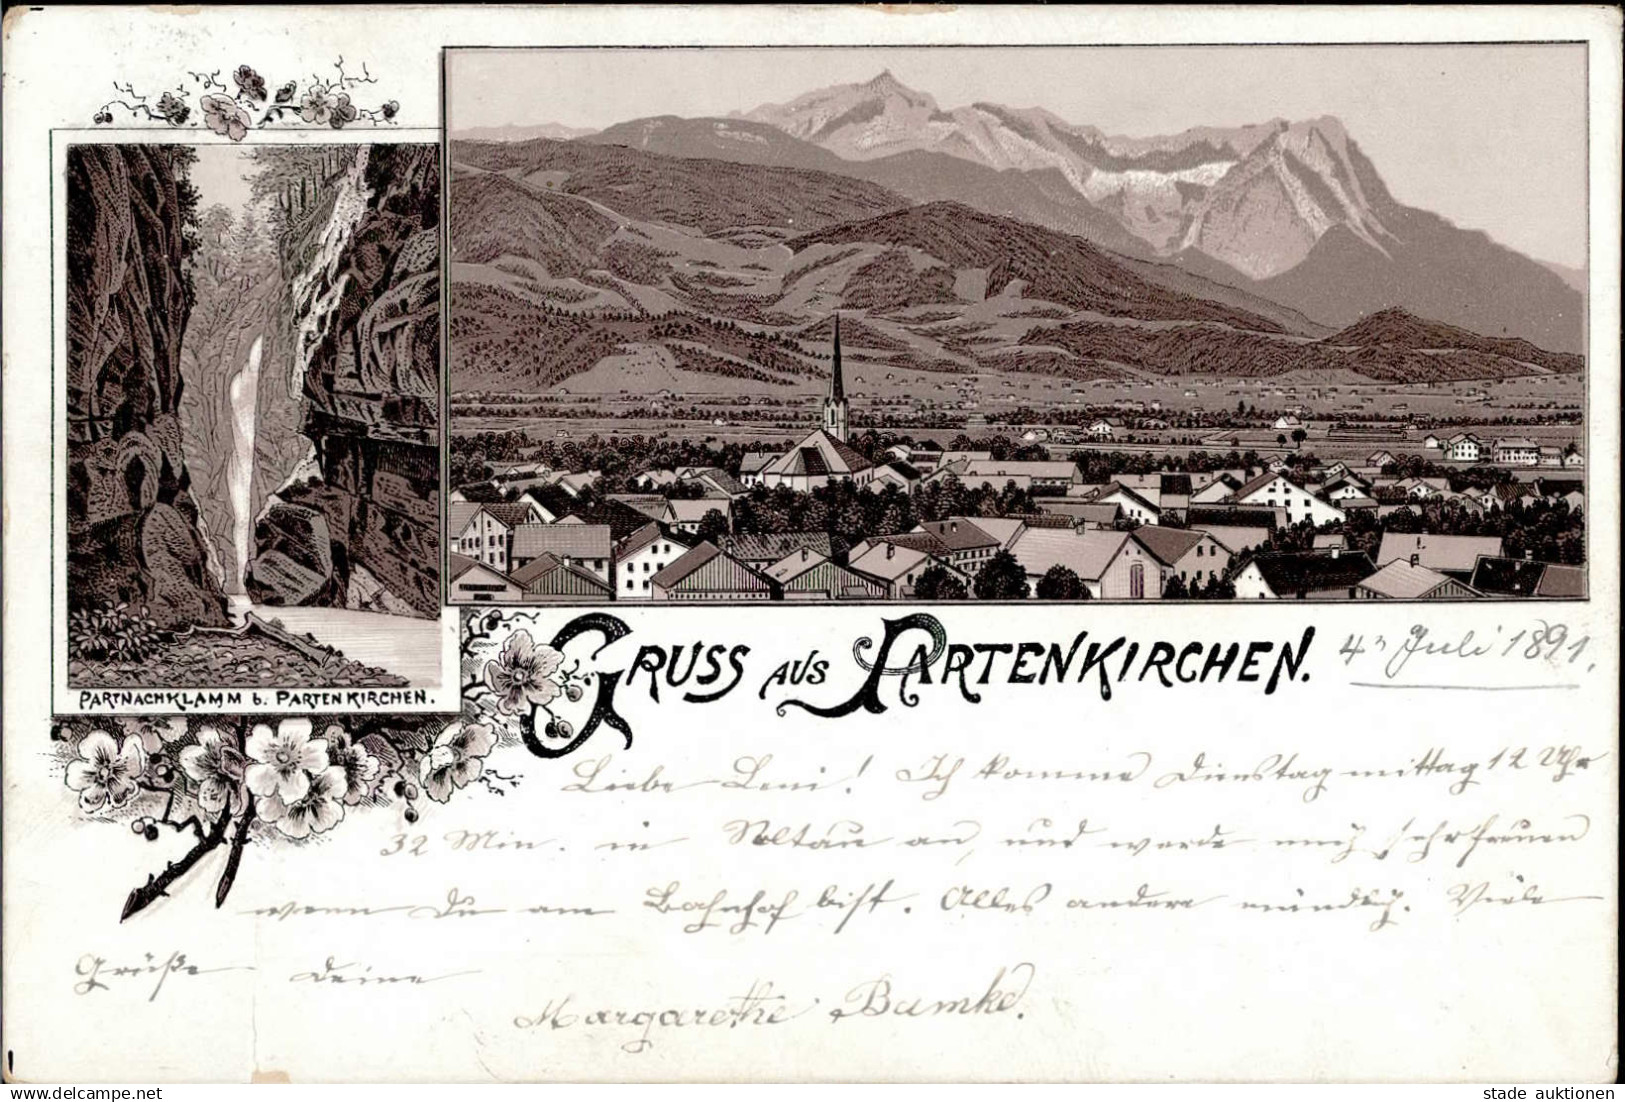 PARTNACHKLAMM b. PARTENKIRCHEN.
GRUSS AUS PARTENKIRCHEN.
4ⁿ Juli 1891.
Liebe Leni! Ich komme Dienstag mittag 12 Uhr
32 Min. in Soltau an, und werde mich sehr freuen
wenn Du am Bahnhof bist. Alles andere mündlich. Viele
Grüße Deine
Margarethe Bumke.
www.delcampe.net
stade auktionen